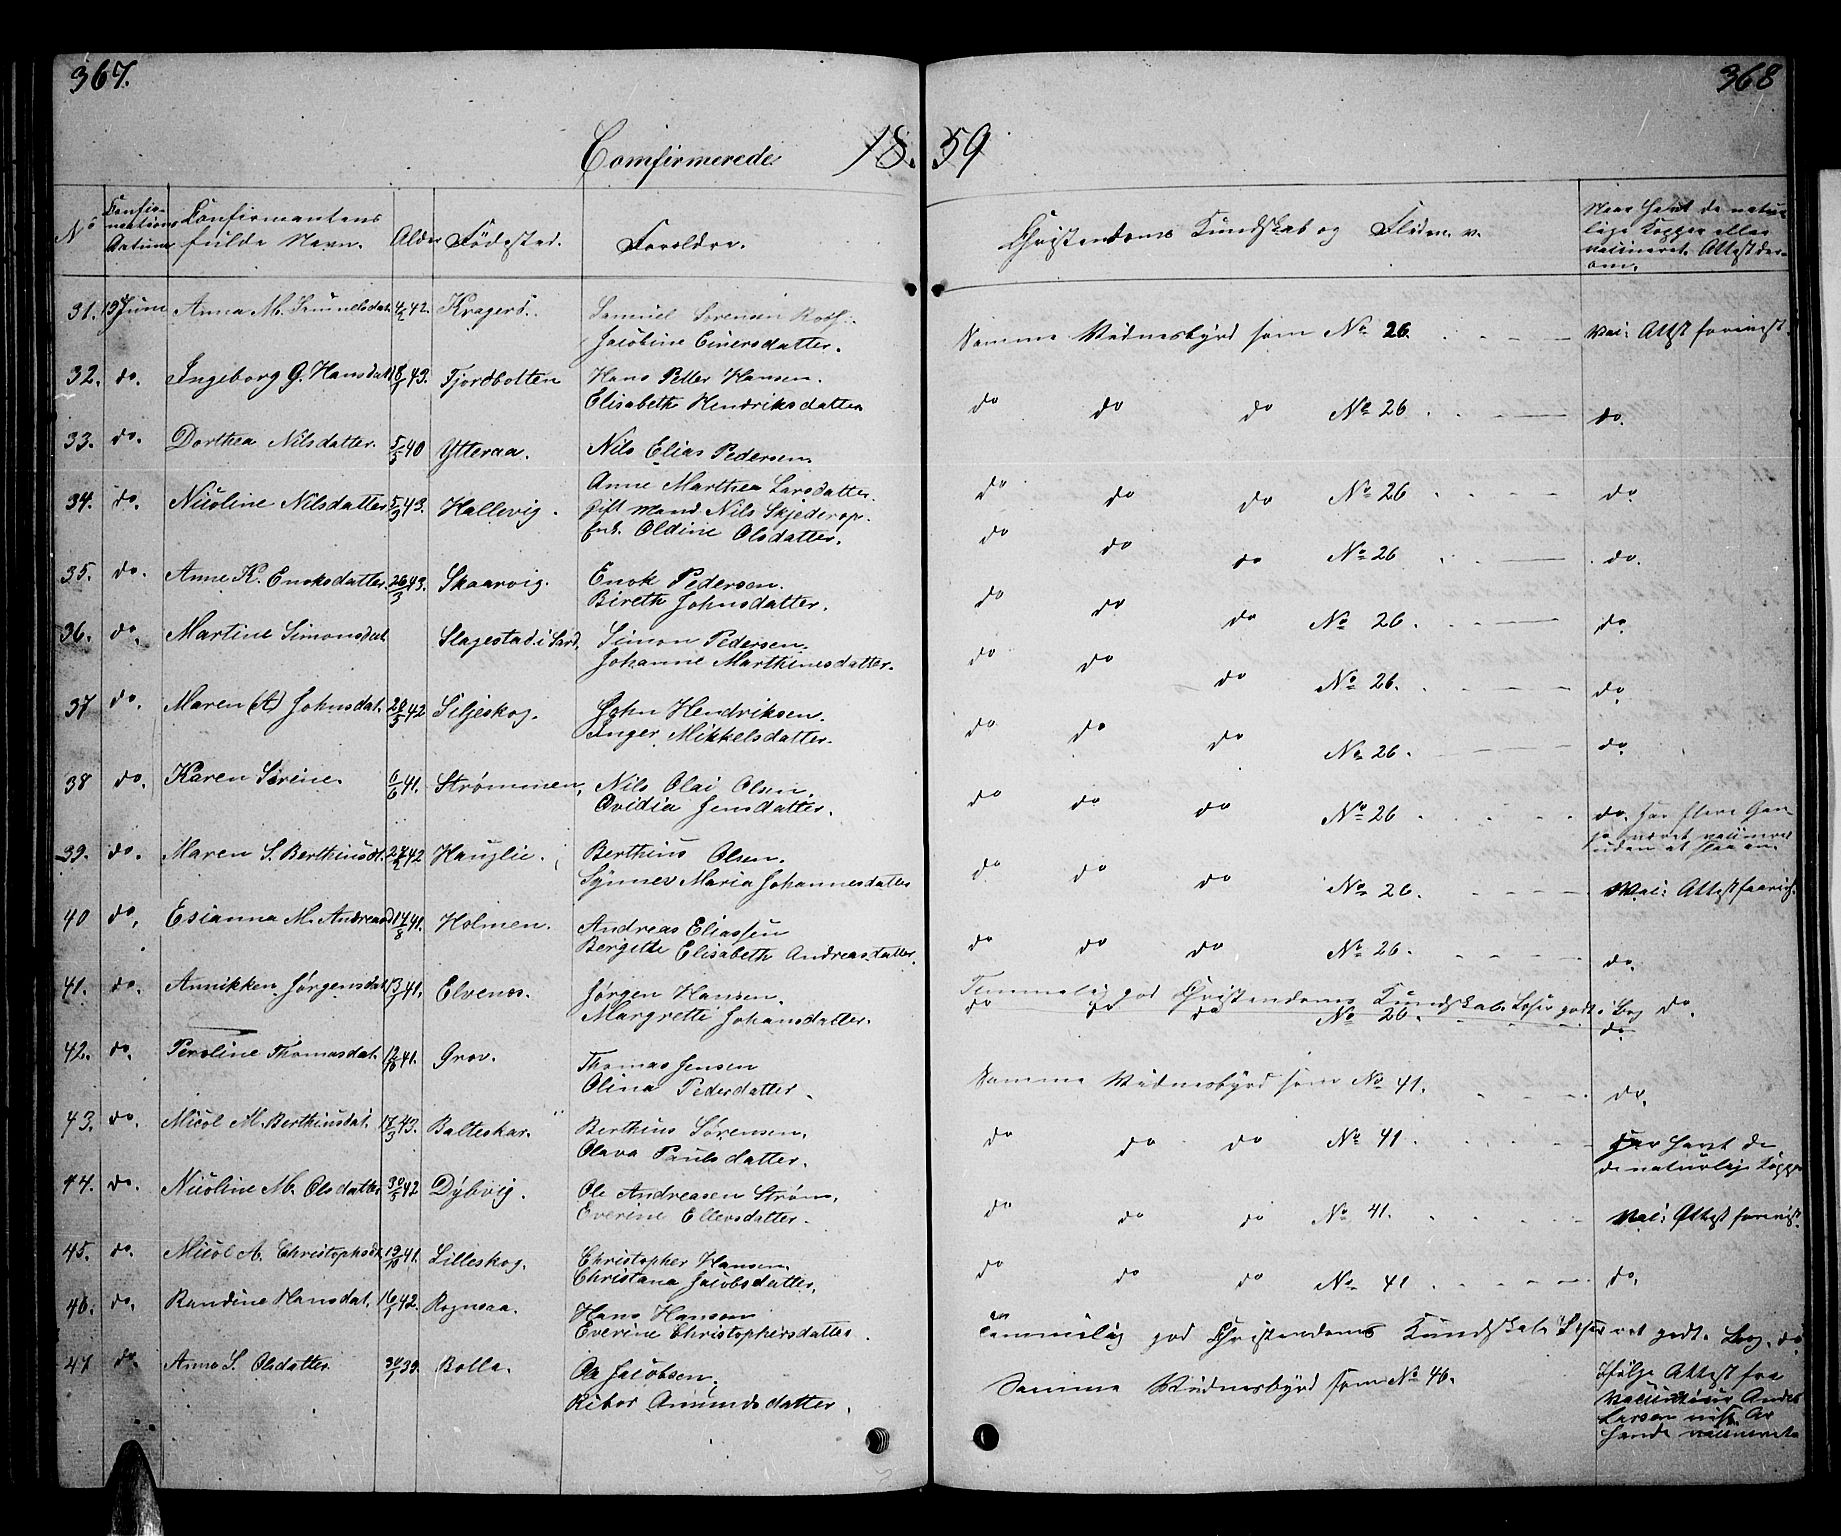 367.
368
Comfirmerede 18.59
No
Confir-
mations
Datum
Confirmantens
fulde Navn.
Alder
Födestad.
Foreldre.
Christendoms Kundskab og Fliden. v.
Naar havt de natur
lige Kopper eller
vaccineret. Attest der-
om.
31. 19 Juni Anna M. Samuelsdat. 4/2 42. Kragerö. Samuel Sörensen
Jacobine Einersdatter.
Samme Vidnesbyrd som No 26. Vac: Attest forevist.
32. do. Ingeborg G. Hansdat 18/1 43. Fjordbotten Hans Peller Hansen.
Elisabeth Hendriksdatter
do do do No 26. do.
33. do. Dorthea Nilsdatter. 5/3 40 Ytteraa. Nils Elias Pedersen.
Anne Marthea Larsdatter.
do do do No 26 do.
34. do. Nicoline Nilsdatter 5/3 43. Hallevig. Gift mand Nils Skjederop.
Enk. Oldine Olsdatter.
do do do No 26 do.
35. do. Anne K. Enoksdatter 26/3 43. Skaarvig. Enok Pedersen.
Bireth Johnsdatter.
do do do No 26. do.
36. do. Martine Simonsdat Slagestad i Sard. Simon Pedersen.
Johanne Marthinesdatter.
do do do No 26. do.
37 do. Maren (A) Johnsdat. 28/5 42 Siljeskog. John Hendriksen.
Inger Mikkelsdatter.
do do do No 26. do.
38 do. Karen Sirine. 6/6 41. Strømmen. Nils Olai Olsen.
Ovidia Jensdatter.
do do do No 26 do. har flere Gan-
ge været vaccineret
uden at slaa an.
39. do. Maren S. Berthinsdt. 27/2 42 Hauglie. Berthius Olsen.
Synnev Maria Johannesdatter
do do do No 26. Vac: Attest forevist.
40 do. Esianna M. Andreasd 17/8 41. Holmen. Andreas Eliassen
Bergithe Elisabeth Andreasdatter.
do do do No 26. do.
41. do. Annikken Jørgensdat 13/1 41. Elvenes. Jørgen Hansen.
Margrethe Johansdatter.
Temmelig god Christendoms Kundskab. Læser godt i Bog do.
do do do No 26. do.
42. do. Peroline Thomasdat. 12/10 41. Grov. Thomas Jensen
Olina Pedersdatter.
Samme Vidnesbyrd som No 41. do.
43. do. Nicol M. Berthinsdat. 18/3 43. Balteskar. Berthius Sørensen.
Olava Paulsdatter.
do do do No 41 har havt de
de naturlige Kopper
44. do. Nicoline M. Olsdatter 30/5 42 Dybvig. Ole Andreasen Strøm.
Everine Ellevsdatter.
do do do No 41. Vac: Attest forevist.
45. do. Nicol A. Christophsdt. 19/10 41. Lilleskog. Christopher Hansen.
Christana Jacobsdatter.
do do do No 41 do.
46. do. Randine Hansdat. 16/1 42. Rognsaa. Hans Hansen
Everine Christophersdatter.
Temmelig god Christendoms Kundskab Læser ret godt. Bog. do.
47 do. Anne S. Olsdatter 30/1 39. Bolla. Ole Jacobsen.
Ribor Amundsdatter.
Samme Vidnesbyrd som No 46. Ifølge Attest fra
Vaccinateur Andes
Larsen